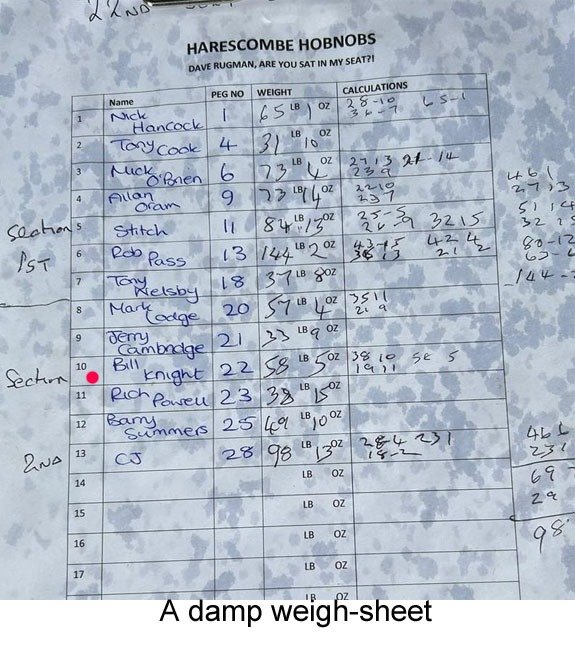 22ND
HARESCOMBE HOBNOBS
DAVE RUGMAN, ARE YOU SAT IN MY SEAT?!
Name PEG NO WEIGHT CALCULATIONS
1 Nick Hancock 1 65 LB 1 OZ 28-10 65-1
36-7
2 Tony Cook 4 31 LB 10 OZ
3 Mick O'Brien 6 73 LB 4 OZ 2713 21-14
239
4 Allan Oram 9 73 LB 14 OZ
237
Section 5 Stitch 11 84 LB 13 OZ 25-5 3215
1ST 6 Rob Pass 13 144 LB 2 OZ 43-15 42 4
21 2
7 Tony Nelsby 18 37 LB 8 OZ
8 Mark Lodge 20 57 LB 4 OZ 3511
21 9
9 Jerry Cambridge 21 33 LB 9 OZ
Section 10 Bill Knight 22 58 LB 5 OZ 38 10 5
19 11
11 Rich Powell 23 38 LB 15 OZ
12 Barry Summers 25 49 LB 10 OZ
2ND 13 CJ 28 98 LB 13 OZ 28-4 231
18-2
14 LB OZ
15 LB OZ
16 LB OZ
17 LB OZ
LB OZ
461
2713
51 14
80-12
144-
461
231
69
29
98
A damp weigh-sheet